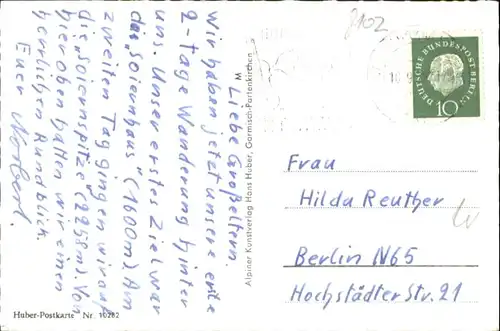 M
Liebe Großeltern.
Wir haben jetzt unsere erste
2-tage Wanderung hinter
uns. Unser erstes Ziel war
das „Soiernhaus" (1600m). Am
zweiten Tag gingen wir auf
die „Soiernspitze" (2258m). Von
hier oben hatten wir einen
herrlichen Rundblick.
Euer Norbert.
Huber-Postkarte Nr. 10282
Alpiner Kunstverlag Hans Huber, Garmisch-Partenkirchen
8102
DEUTSCHE BUNDESPOST BERLIN
10
Frau
Hilda Reuther
Berlin N65
Hochstädter Str. 21